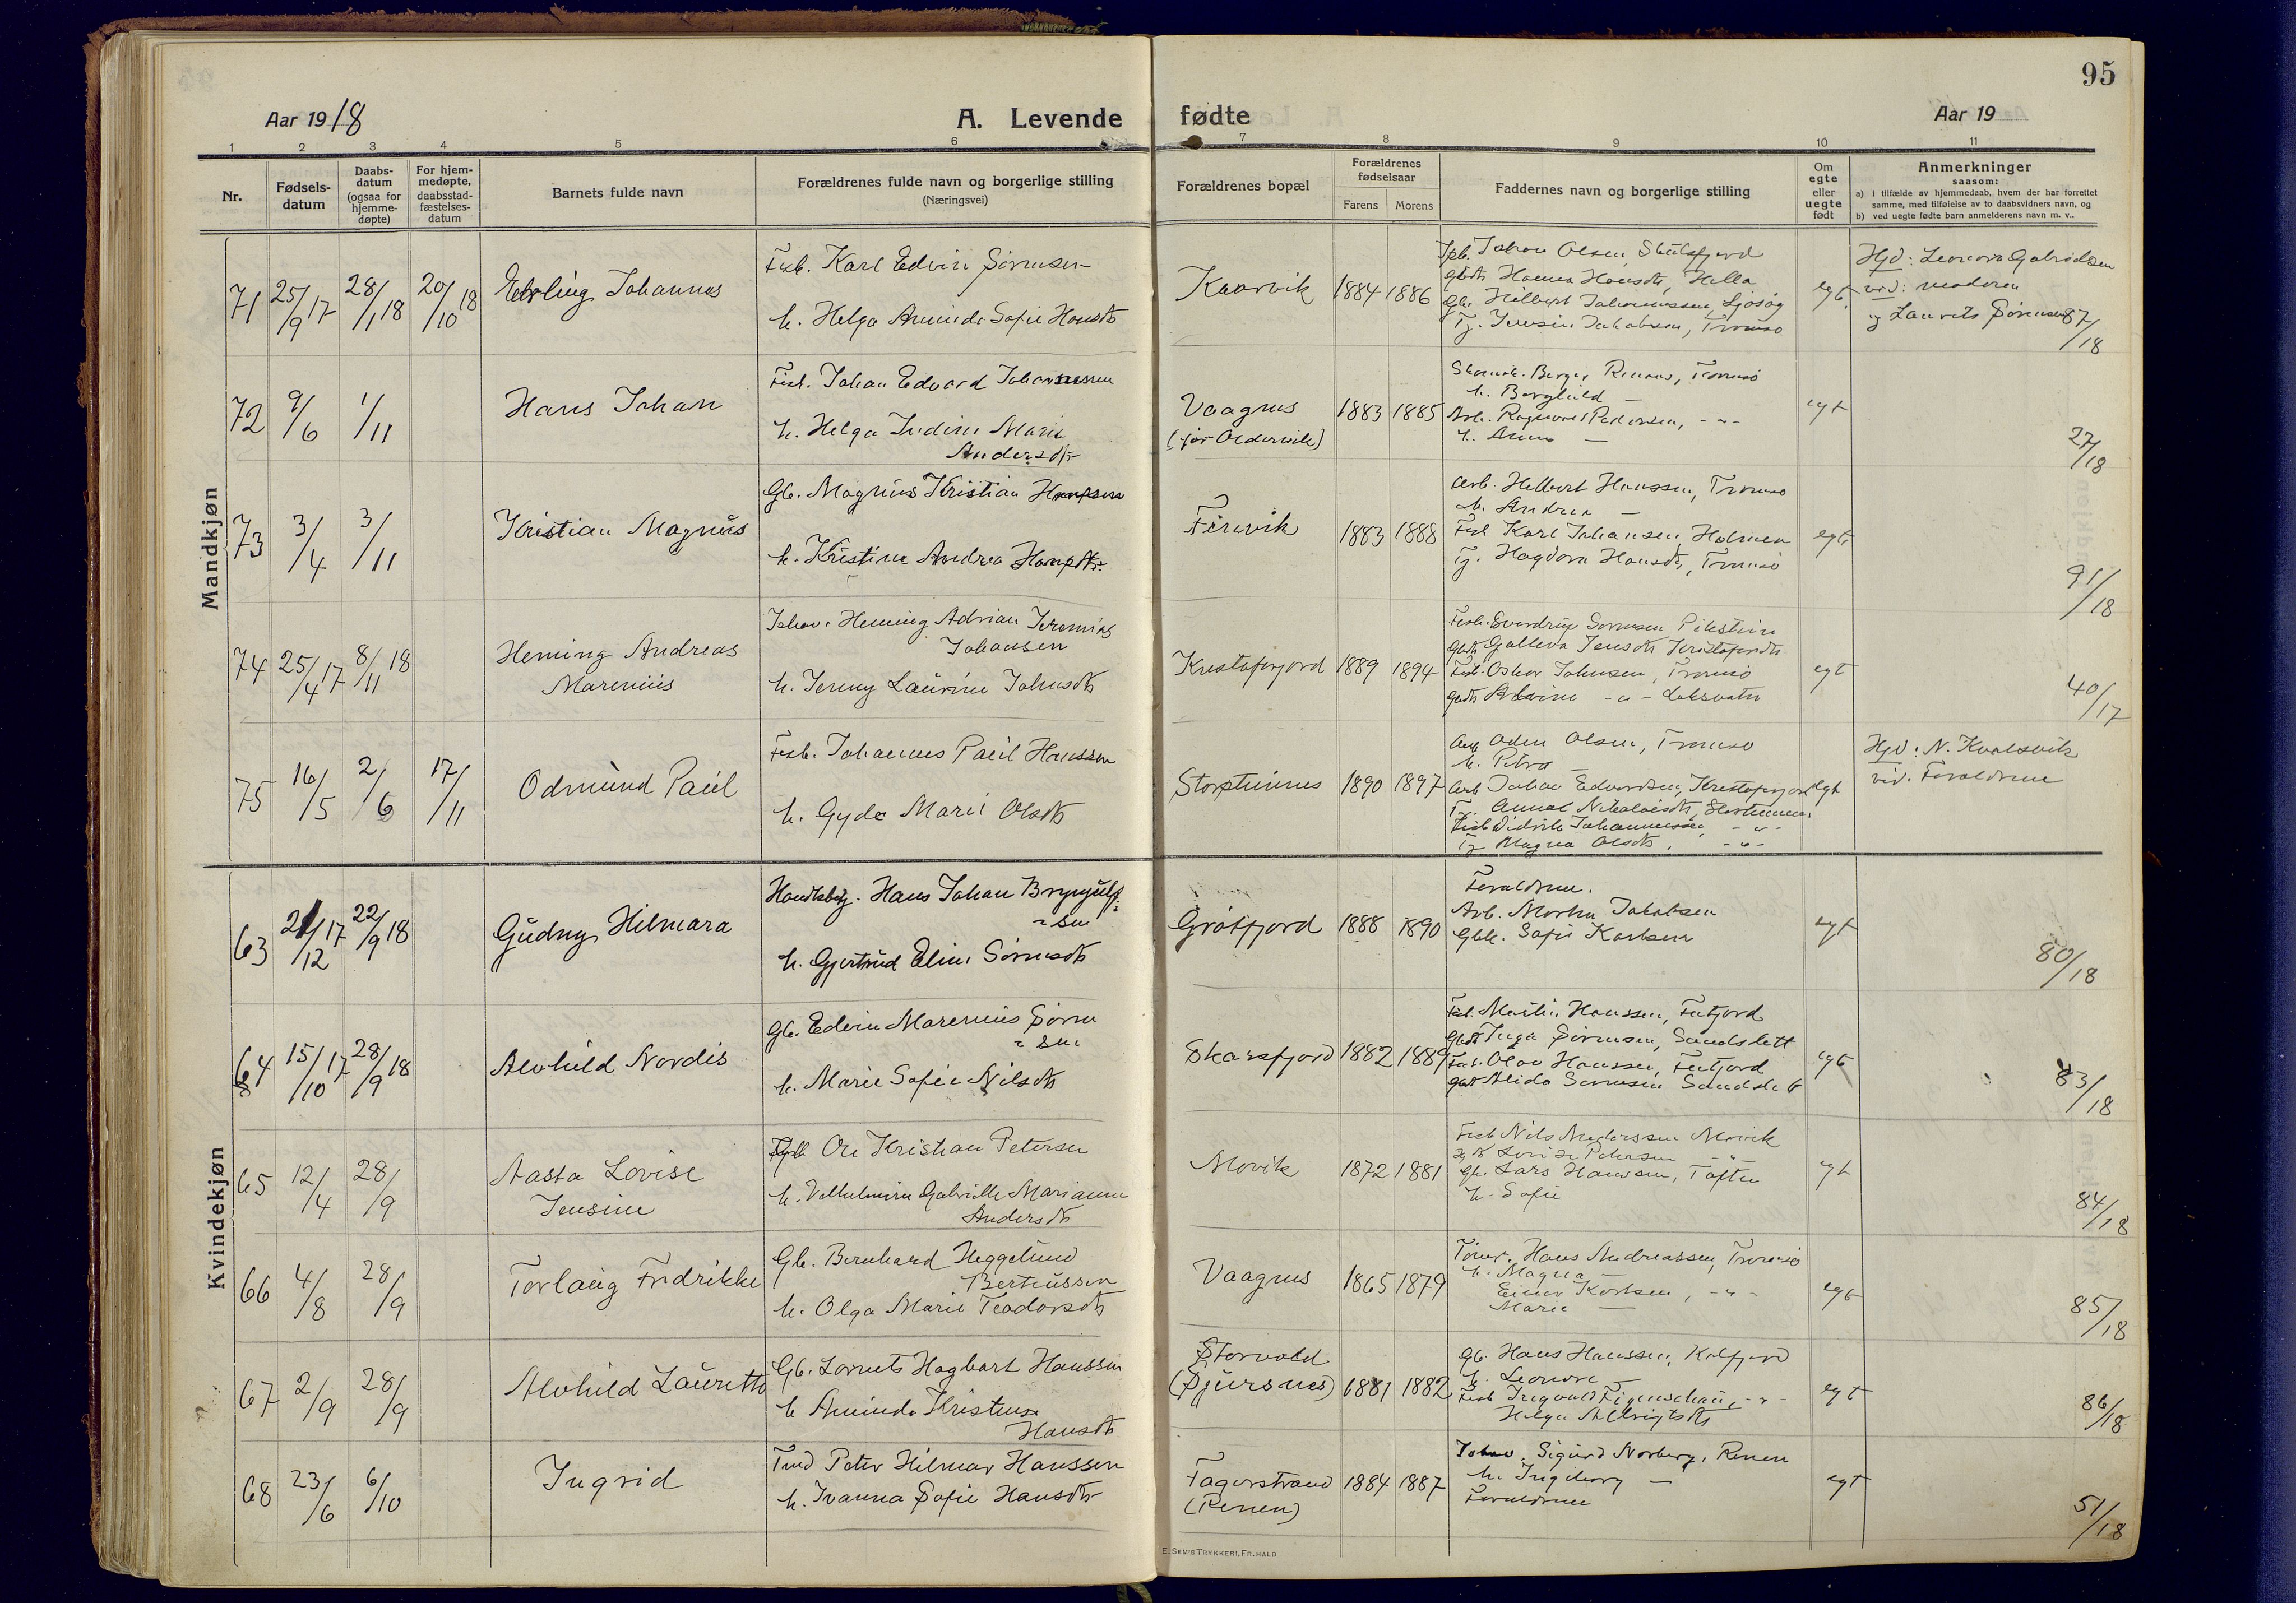 95
Aar 1918 A. Levende fødte Aar 19
1 2 3 4 5 6 7 8 9 10 11
Nr. Fødsels-datum Daabs-datum (ogsaa for hjemme-døpte) For hjem-medøpte, daabsstad-fæstelses-datum Barnets fulde navn Forældrenes fulde navn og borgerlige stilling (Næringsvei) Forældrenes bopæl Forældrenes fødselsaar Farens Morens Faddernes navn og borgerlige stilling Om egte eller uegte født Anmerkninger saasom:
a) i tilfælde av hjemmedaab, hvem der har forrettet samme, med tilføielse av to daabsvidners navn, og
b) ved uegte fødte barn anmelderens navn m. v..
Mandkjøn
71 25/9 17 28/1 18 20/10 18 Erling Johannes
Fisb. Karl Edvin Sørensen
h. Helga Amunda Sofie Hansdtr
Kaarvik 1884 1886
Johan Olsen, Skulsfjord
Hanna Hansdtr, Hella
Gb. Hilbert Johannessen,
Tj. Jensine Jakobsen, Tromsø
egt.
Hjd: Leonora Gabrielsen
vid: moderen
og Laurits Sørensen 87/18
72 9/6 1/11 Hans Johan
Fisk. Johan Edvard Johannessen
h. Helga Indine Marie
Andersdtr
Vaagnes
(før Oldervik)
1883 1885
Berger Tromsø
h. Borghild —
Arb. Ragnvald Pedersen, -"-
h. Anna —
egt
27/18
73 3/4 3/11 Kristian Magnus
Gb. Magnus Kristian Hansen
h. Kristine Andrea Hansdtr.
Finvik 1883 1888
Arb. Hilbert Hanssen, Tromsø
h. Andrea —
Fisk Karl Johansen, Holmen
Tj. Hagdora Hansdtr, Tromsø
egte
91/18
74 25/4 17 8/11 18 Heming Andreas
Marenius
Heming Adrian Jeremias
Johansen
h. Jenny Laurine Johnsdtr
Krestofrjord 1889 1894
Fisk. Sverdrup Sørensen
Jensdtr
Fisk. Oskar Johnsen, Tromsø
-"- Laksvatn
egt
40/17
75 16/5 2/6 17/11 Odmund Paul
Fisk. Johannes Paul Hanssen
h. Gyda Marie Olsdtr
Storsteinnes 1890 1897
Arb Odin Olsen, Tromsø
h. Petra —
Arb Johan Edvardsen,
Tj. Nikolaisdtr,
Fisk Didrik Johannessen, -"-
Tj Magna Olsdtr, -"-
egt
Hjd: N. Kvalsvik
vid. Forældrene
Kvindekjøn
63 21/12 17 22/9 18 Gudny Hilmara
Handelsbetj. Hans Johan Brynjulf-
sen
h. Gjertrud Eline Sørensdtr
Grøtfjord 1888 1890
Forældrene.
Arb. Morten Jakobsen
Sofie Karlsen
egt
80/18
64 15/10 17 28/9 18 Alvhild Nordis
Gb. Edvin Marenius Søren
sen
h. Marie Sofie Nilsdtr
Skarsfjord 1882 1889
Fisk. Martin Hanssen, Futfjord
Inga Sørensen, Sandslett
Fisk. Olav Hanssen, Futfjord
Alida Sørensen Sandslett
egt
83/18
65 12/4 28/9 Aasta Lovise
Jensine
Ole Kristian Petersen
h. Vilhelmine Gabrielle Marianne
Andersdtr
Movik 1872 1881
Fisk Nils Anderssen Movik
Lovise Petersen -"-
Gb. Lars Hanssen, Toften
h. Sofie
egt
84/18
66 4/8 28/9 Torlaug Fredrikke
Gb. Bernhard Heggelund
Berteussen
h. Olga Marie Teodorsdtr
Vaagnes 1865 1879
Tømr. Hans Andreassen, Tromsø
h. Magna —
Einar Karlsen, -"-
Marie —
egt
85/18
67 2/9 28/9 Alvhild Lauretta
Gb. Lornets Hagbart Hanssen
h Aminda Kristense
Hansdtr
Storvold
(Sjursnes) 1881 1882
Gb. Hans Hanssen, Kilfjord
h. Leonore —
Fisk Ingvald Figenschau, -"-
Helga
egt
86/18
68 23/6 6/10 Ingrid
Peter Hilmar Hanssen
h. Ivanna Sofie Hansdtr
Fagerstrand
(Renen)
1884 1887
Sigurd Norberg, Renen
h. Ingeborg —
Forældrene
egt
51/18
E. SEM'S TRYKKERI, FR.HALD